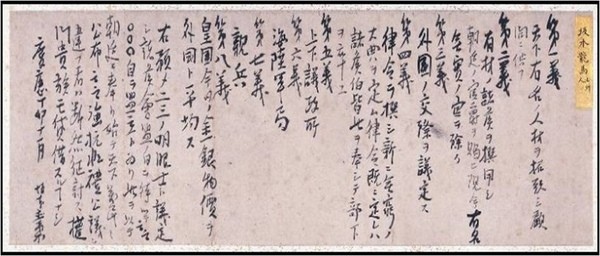 坂本龍馬
第一義
天下有名ノ人材ヲ招致シ顧
問ニ供フ
第二義
有材ノ諸侯ヲ撰用シ
朝廷ノ官爵ヲ賜ヒ現今有名
無実ノ官ヲ除ク
第三義
外国ノ交際ヲ議定ス
第四義
律令ヲ撰シ新ニ無窮ノ
大典ヲ定ム律令既ニ定レハ
諸侯伯皆此ヲ奉シテ部下
ヲ率ユ
第五義
上下議政所
第六義
海陸軍局
第七義
親兵
第八義
皇国今日ノ金銀物価ヲ
外国ト平均ス
右預メ二三ノ明眼士ト議定
シ諸侯会盟ノ日ヲ待ツテ云云
○○○自ラ盟主ト為リ此ヲ以テ
朝廷ニ奉リ始テ天下萬民ニ
公布云云強抗非礼公議ニ
違フ者ハ断然征討ス権
門貴族モ貸借スル事ナシ
慶應丁卯十一月 坂本直柔